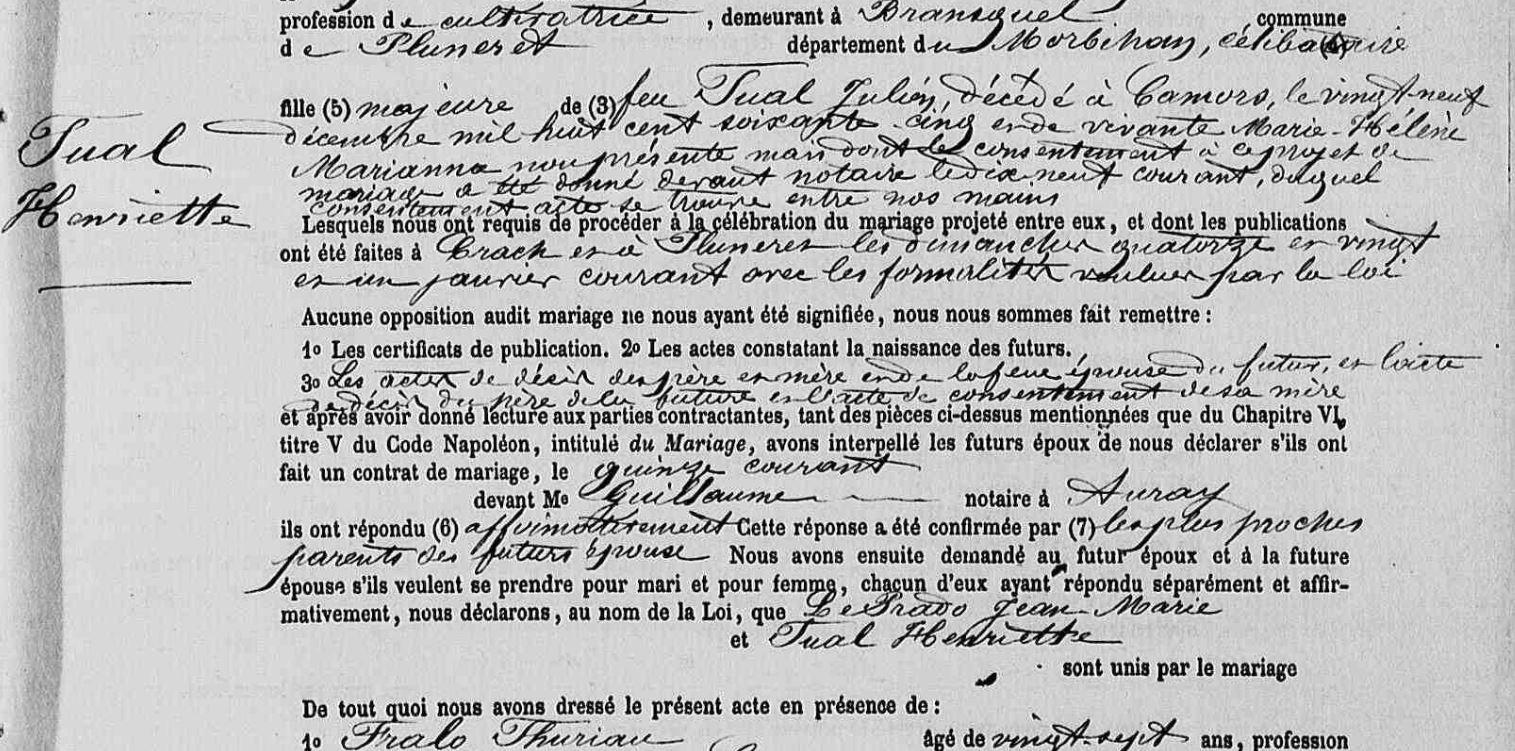 profession de cultivatrice, demeurant à Bransquel commune
de Pluneret département du Morbihan, célibataire
fille (5) majeure de (3) feu Tual Julien, décédé à Camors, le vingt-neuf
Tual
Henriette
décembre mil huit cent soixante-cinq et de vivante Marie-Hélène
Marianne non présente mais dont le consentement à ce projet de
mariage a été donné devant notaire le dix neuf courant, duquel
consentement acte se trouve entre nos mains
Lesquels nous ont requis de procéder à la célébration du mariage projeté entre eux, et dont les publications
ont été faites à Crach et à Pluneret les dimanches quatorze et vingt
et un janvier courant avec les formalités voulues par la loi
Aucune opposition audit mariage ne nous ayant été signifiée, nous nous sommes fait remettre :
1o Les certificats de publication. 2o Les actes constatant la naissance des futurs.
3o Les actes de décès des père et mère et de la feue épouse du futur, et l'acte
de décès du père de la future et l'acte de consentement de sa mère
et après avoir donné lecture aux parties contractantes, tant des pièces ci-dessus mentionnées que du Chapitre VI,
titre V du Code Napoléon, intitulé du Mariage, avons interpellé les futurs époux de nous déclarer s'ils ont
fait un contrat de mariage, le quinze courant
devant Me Guillaume notaire à Auray
ils ont répondu (6) affirmativement Cette réponse a été confirmée par (7) les plus proches
parents des futurs épouse Nous avons ensuite demandé au futur époux et à la future
épouse s'ils veulent se prendre pour mari et pour femme, chacun d'eux ayant répondu séparément et affir-
mativement, nous déclarons, au nom de la Loi, que Le Prado Jean-Marie
et Tual Henriette
sont unis par le mariage
De tout quoi nous avons dressé le présent acte en présence de :
1o Fralo Thuriau âgé de vingt-sept ans, profession